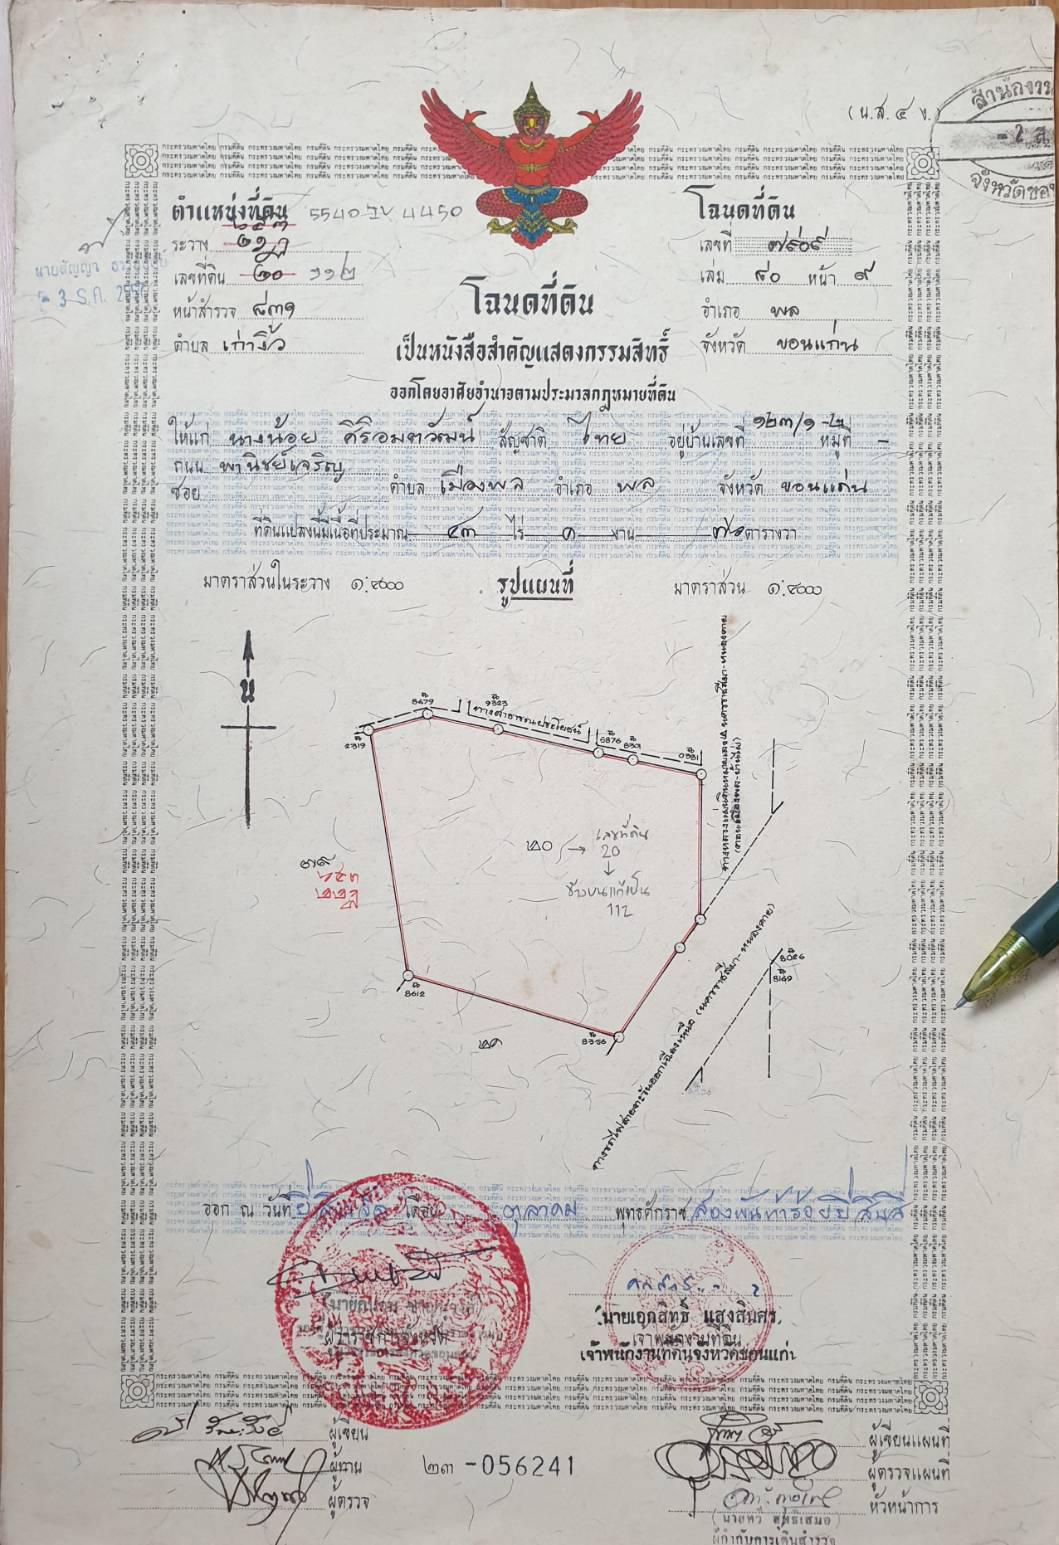 (น.ส.๔ ง.
สำนักงาน
- 2 ส.
จังหวัดขอน
ตำแหน่งที่ดิน 5540 IV 4450
ระวาง
เลขที่ดิน ๒๐ ๑๑๒
หน้าสำรวจ ๘๓๑
ตำบล เก่างิ้ว
โฉนดที่ดิน
เลขที่ ๗๙๐๙
เล่ม ๘๐ หน้า ๙
อำเภอ พล
จังหวัด ขอนแก่น
โฉนดที่ดิน
เป็นหนังสือสำคัญแสดงกรรมสิทธิ์
ออกโดยอาศัยอำนาจตามประมวลกฎหมายที่ดิน
ให้แก่ นางน้อย ศิริอมตวัฒน์ สัญชาติ ไทย อยู่บ้านเลขที่ ๑๒๓/๑-๒ หมู่ที่ -
ถนน พานิชย์เจริญ
ซอย ตำบล เมืองพล อำเภอ พล จังหวัด ขอนแก่น
ที่ดินแปลงนี้มีเนื้อที่ประมาณ ๔๓ ไร่ ๑ งาน ตารางวา
มาตราส่วนในระวาง ๑:๔๐๐๐ รูปแผนที่ มาตราส่วน ๑:๔๐๐๐
น
8679
9323
ทางสาธารณประโยชน์
2719
5876
8301
0381
๒๐ → เลขที่ดิน
20
ข้างบนแก้เป็น
112
๗๙
8612
๒๑
8386
8026
8149
ทางรถไฟสายตะวันออกเฉียงเหนือ (นครราชสีมา-หนองคาย)
ออก ณ วันที่ ยี่สิบเอ็ด เดือน ตุลาคม พุทธศักราช สองพันห้าร้อยยี่สิบสี่
นายเอกสิทธิ์ แสงสินศร
เจ้าพนักงานที่ดิน
เจ้าพนักงานที่ดินจังหวัดขอนแก่น
ผู้ว่าราชการจังหวัด
ผู้เขียน
ผู้ทาน
ผู้ตรวจ
๒๓-056241
ผู้เขียนแผนที่
ผู้ตรวจแผนที่
หัวหน้าการ
(นายทวี สุทธิเสมอ)
ผู้กำกับการเดินสำรวจ